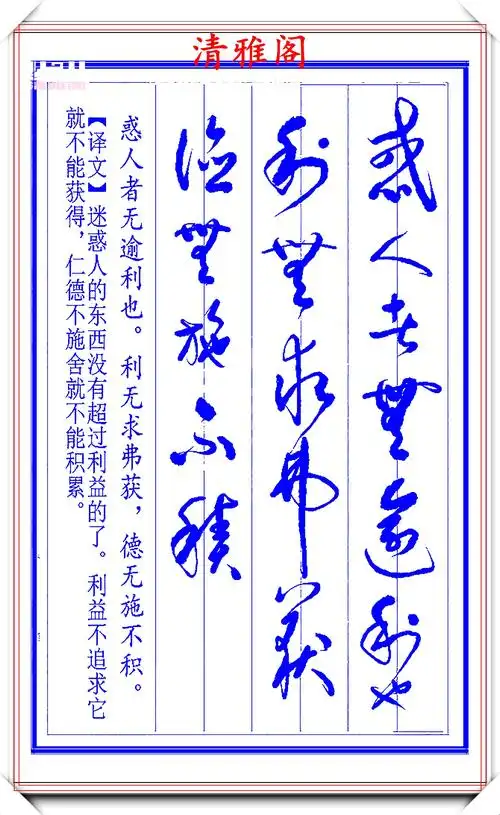 清雅阁
惑人者無逾利也
利無求弗获
德無施不積
惑人者无逾利也。利无求弗获，德无施不积。
【译文】迷惑人的东西没有超过利益的了。利益不追求它
就不能获得，仁德不施舍就不能积累。